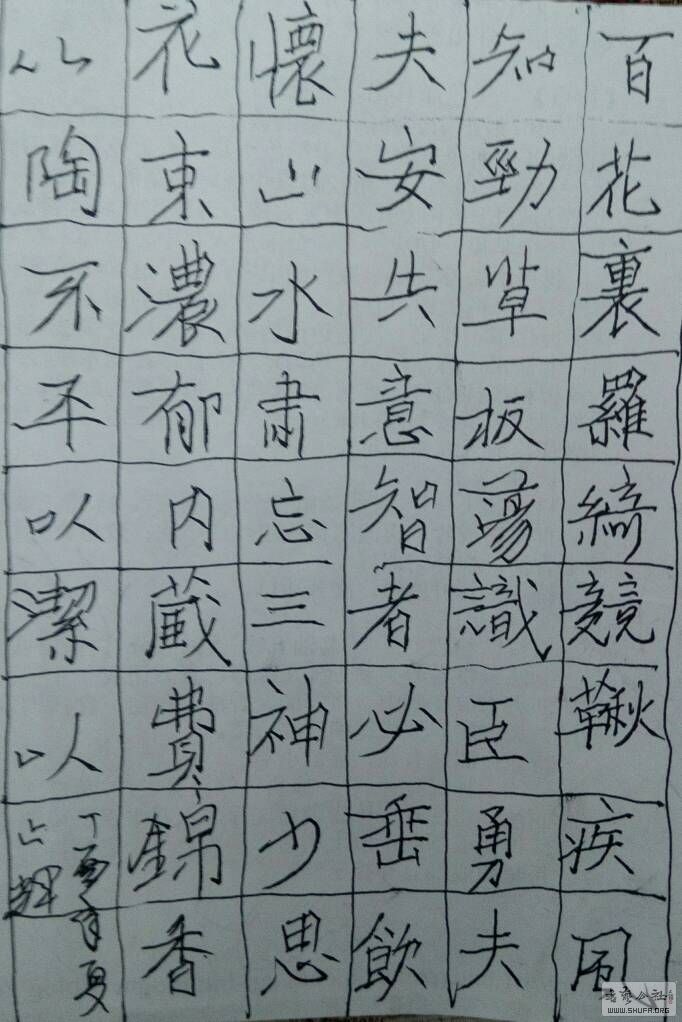 百花裏羅綺競鞦疾風
知勁草板蕩識臣勇夫
夫安共意智者必垂飲
懷山水肅忘三神少思
花東濃郁内蔵費錦香
以陶不平以潔以
丁酉年夏
書藝公社
WWW.SHUFA.ORG